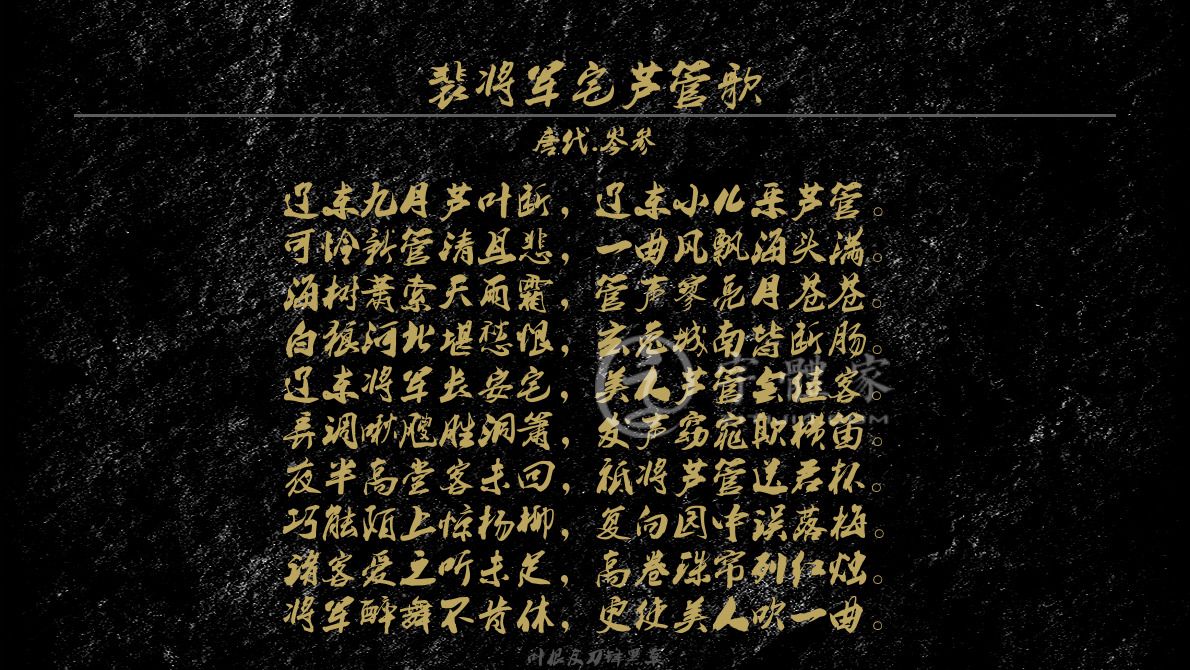 裴将军宅芦管歌
唐代.岑参
辽东九月芦叶断，辽东小儿采芦管。
可怜新管清且悲，一曲风飘海头满。
海树萧索天雨霜，管声寥亮月苍苍。
白狼河北堪愁恨，玄兔城南皆断肠。
辽东将军长安宅，美人芦管会佳客。
弄调啾飕胜洞箫，发声窈窕欺横笛。
夜半高堂客未回，祗将芦管送君杯。
巧能陌上惊杨柳，复向园中误落梅。
诸客爱之听未足，高卷珠帘列红烛。
将军醉舞不肯休，更使美人吹一曲。
叶根友刀锋黑草